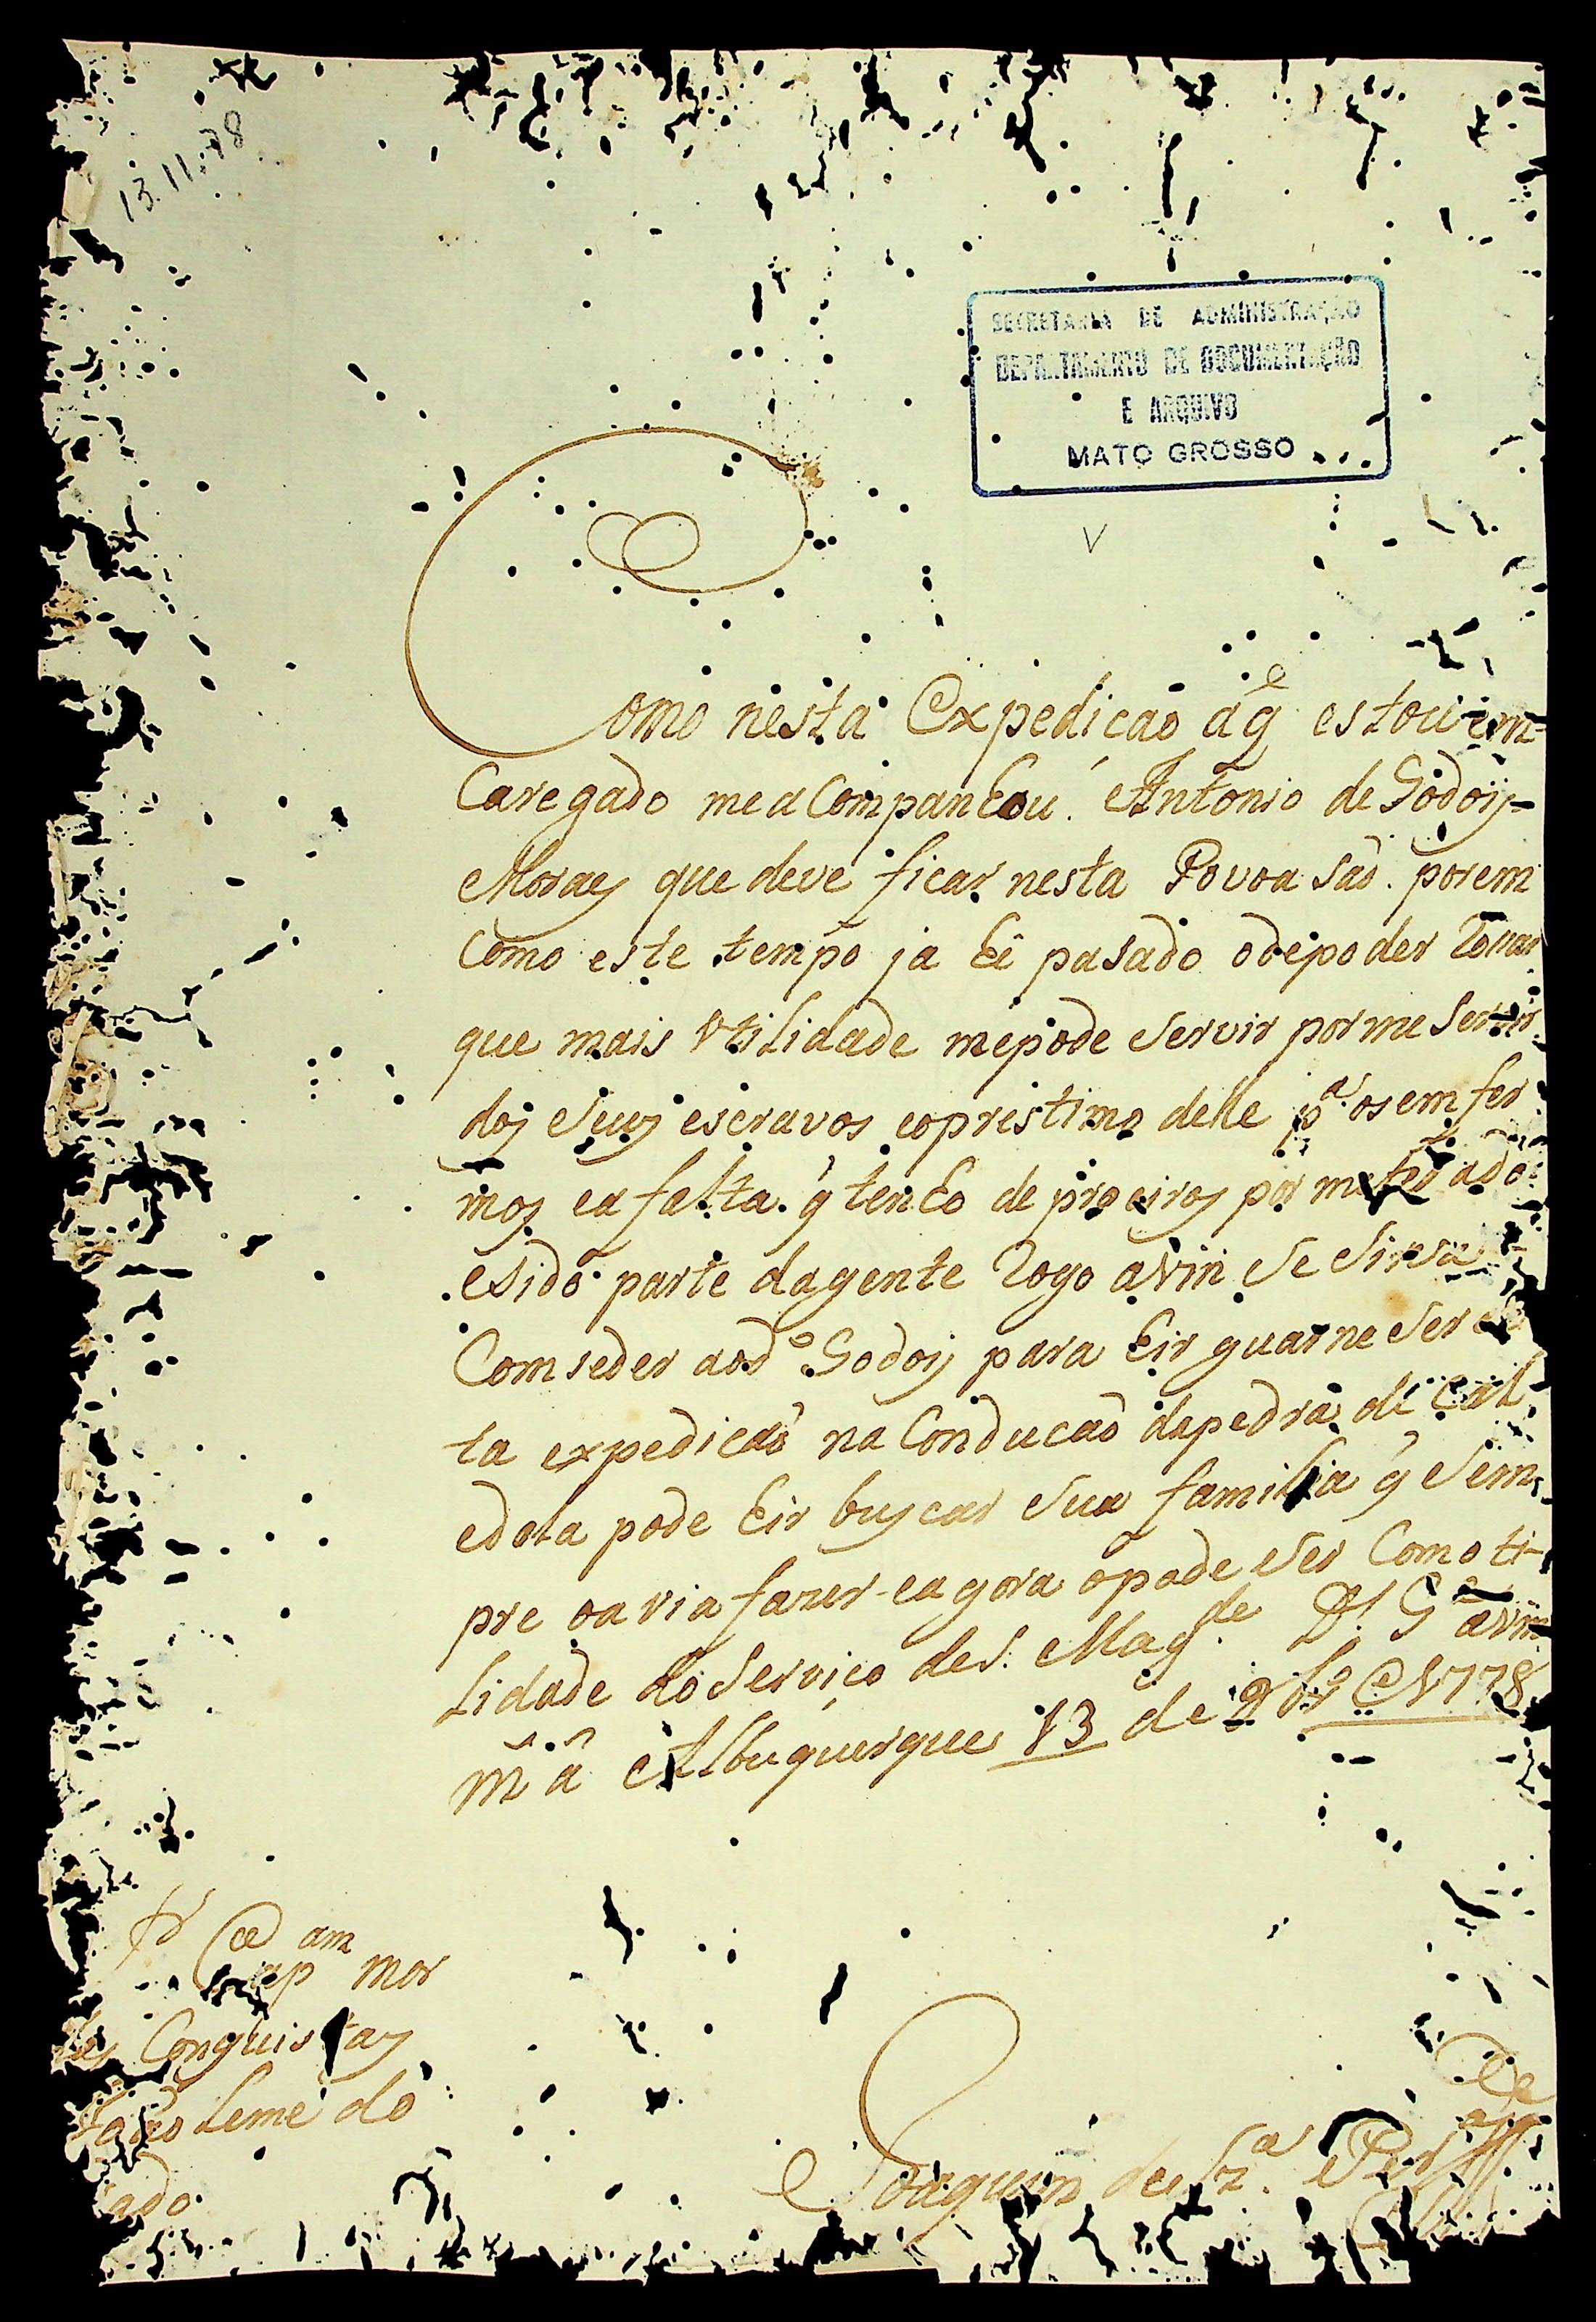 13.11.78
SECRETARIA DE ADMINISTRAÇÃO
DEPARTAMENTO DE DOCUMENTAÇÃO
E ARQUIVO
MATO GROSSO
V
Como nesta Expedicaõ aq̃ estou em=
Caregado me a Companhou. Antonio de Godoÿ
Moraes que deve ficar nesta Povoa saõ. porem
como este tempo ja hê pasado odepoder
que mais Vtilidade mepode Servir porme Servir
dos Seus escravos eoprestimo delle pª osemfer
mos ea falta. q̃ tenho de proeiros por me ter ado
esido parte dagente Rogo aVm̃ Se Sirva
Com seder aodº Godoÿ para hir guarneSer
ta expedicaõ na Conducaõ dapedra de Cal
edota pode hir buscar Sua familia q̃ Sem
pre oavia fazer eagora opode Ser Como ti-
lidade do Serviço deS. Magde. Ds. Gde aVm̃
m̃ ã Albuquerque 13 de 9brº @ 1778
Sr Cap am
Cap mor
das Conquistas
Leme do
ado
De
Joaquim de Szª.